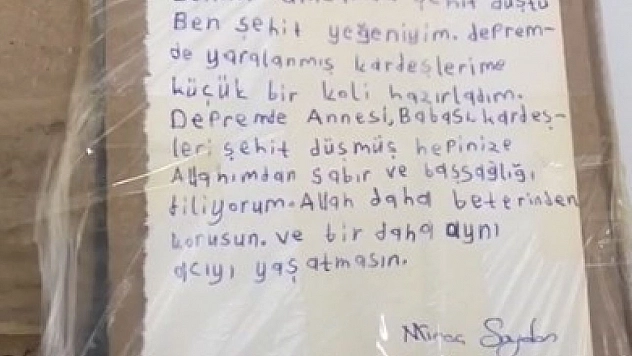 şehit düştü
Ben şehit yeğeniyim. deprem-
de yaralanmış kardeşlerime
küçük bir koli hazırladım.
Depremde Annesi, Babası, kardeş-
leri şehit düşmüş hepinize
Allahımdan sabır ve başsağlığı
diliyorum. Allah daha beterinden
korusun. ve bir daha aynı
acıyı yaşatmasın.
Miraç